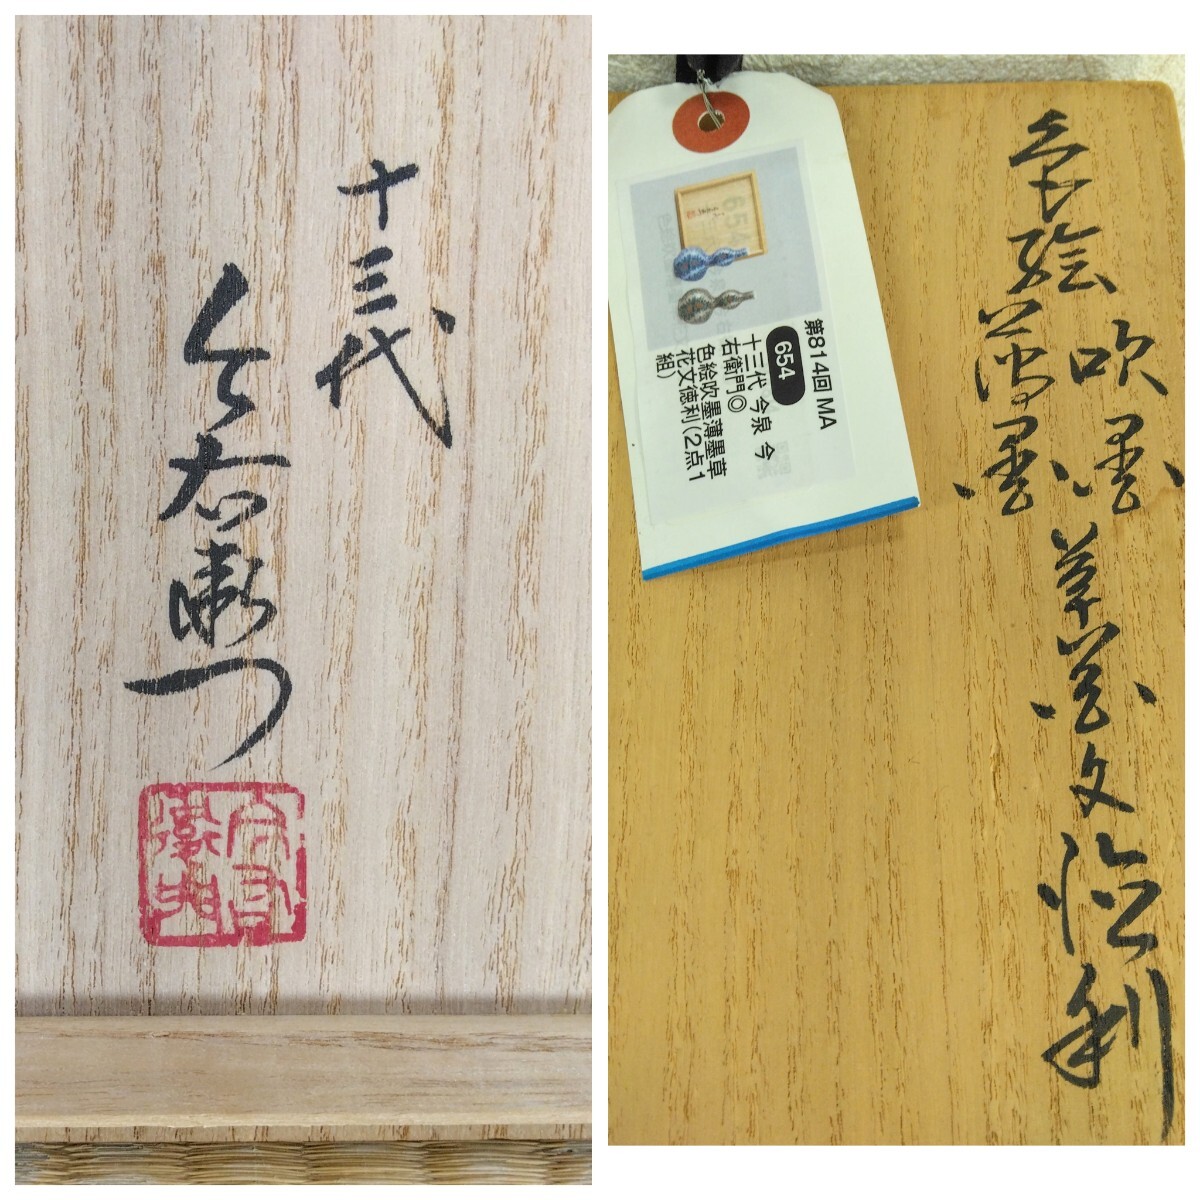 十三代
今右衛門
今右
衛門
第814回 MA
654
十三代 今泉 今
右衛門◎
色絵吹墨薄墨草
花文徳利(2点1
組)
色絵
吹墨
薄墨
草花文徳利